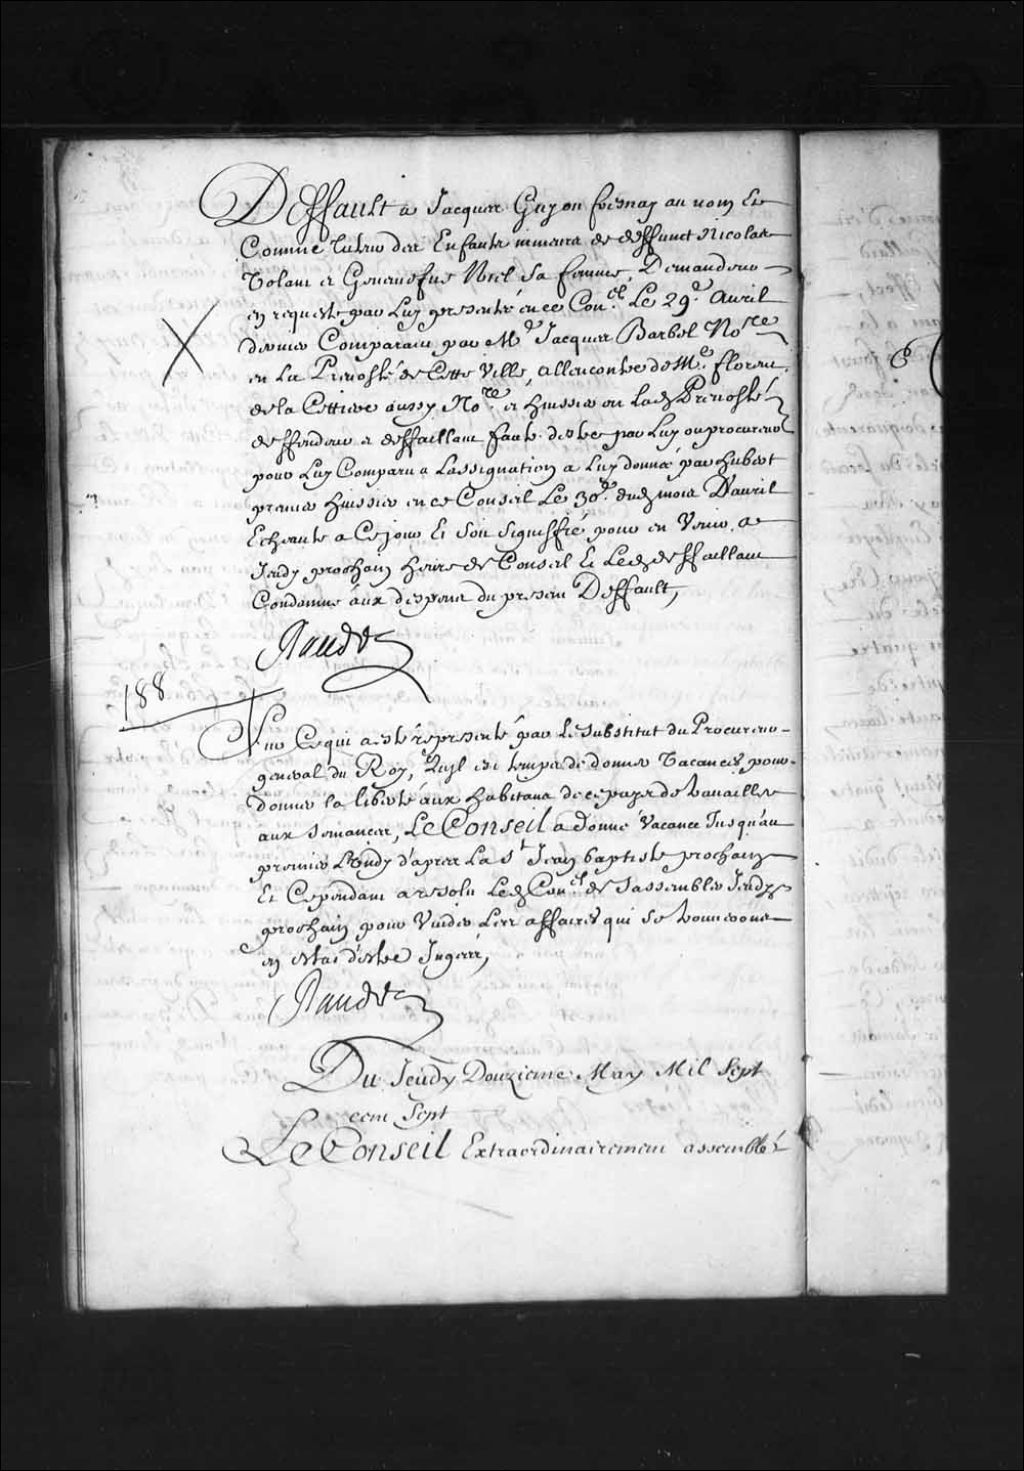 Deffault a Jacques Guyon fresnay au nom Et
Comme tuteur des Enfants mineurs de deffunct Nicolas
Volant et Geneviefve Niel sa femme, Demandeur
en requeste par Luy presentée en ce Con.el Le 29.e Avril
dernier Comparant par M.e Jacques Barbel No.re
en La Prevosté de Cette Ville, allencontre de M.e florent
de la Cettiere aussy No.re et huissier en lad. Prevosté
deffendeur et deffaillant faute destre par Luy ou procureur
pour Luy Comparu a Lassignation a Luy donnée par hubert
premier huissier en ce Conseil Le 30.e dud. mois D'avril
Echeante a Ce jour Et soit signiffié pour en Venir a
Jeudy prochain heure de Conseil Et Led. deffaillant
Condamné aux despens du present Deffault,
Raudot
188
Sur Ce qui a esté representé par Le substitut du Procureur
general du Roy, Quil est temps de donner Vacances pour
donner la liberté aux habitans de ce pays de travailler
aux semances, Le Conseil a donné Vacance Jusqu'au
premier Lundy d'apres La St Jean baptiste prochain
Et Cependant a resolu Led. Con.el de s'assembler Jeudy
prochain pour Vuider Les affaires qui se trouveront
en estat d'estre Jugées,
Raudot
Du Jeudy Douzieme May Mil Sept
cent Sept
Le Conseil Extraordinairement assemblé